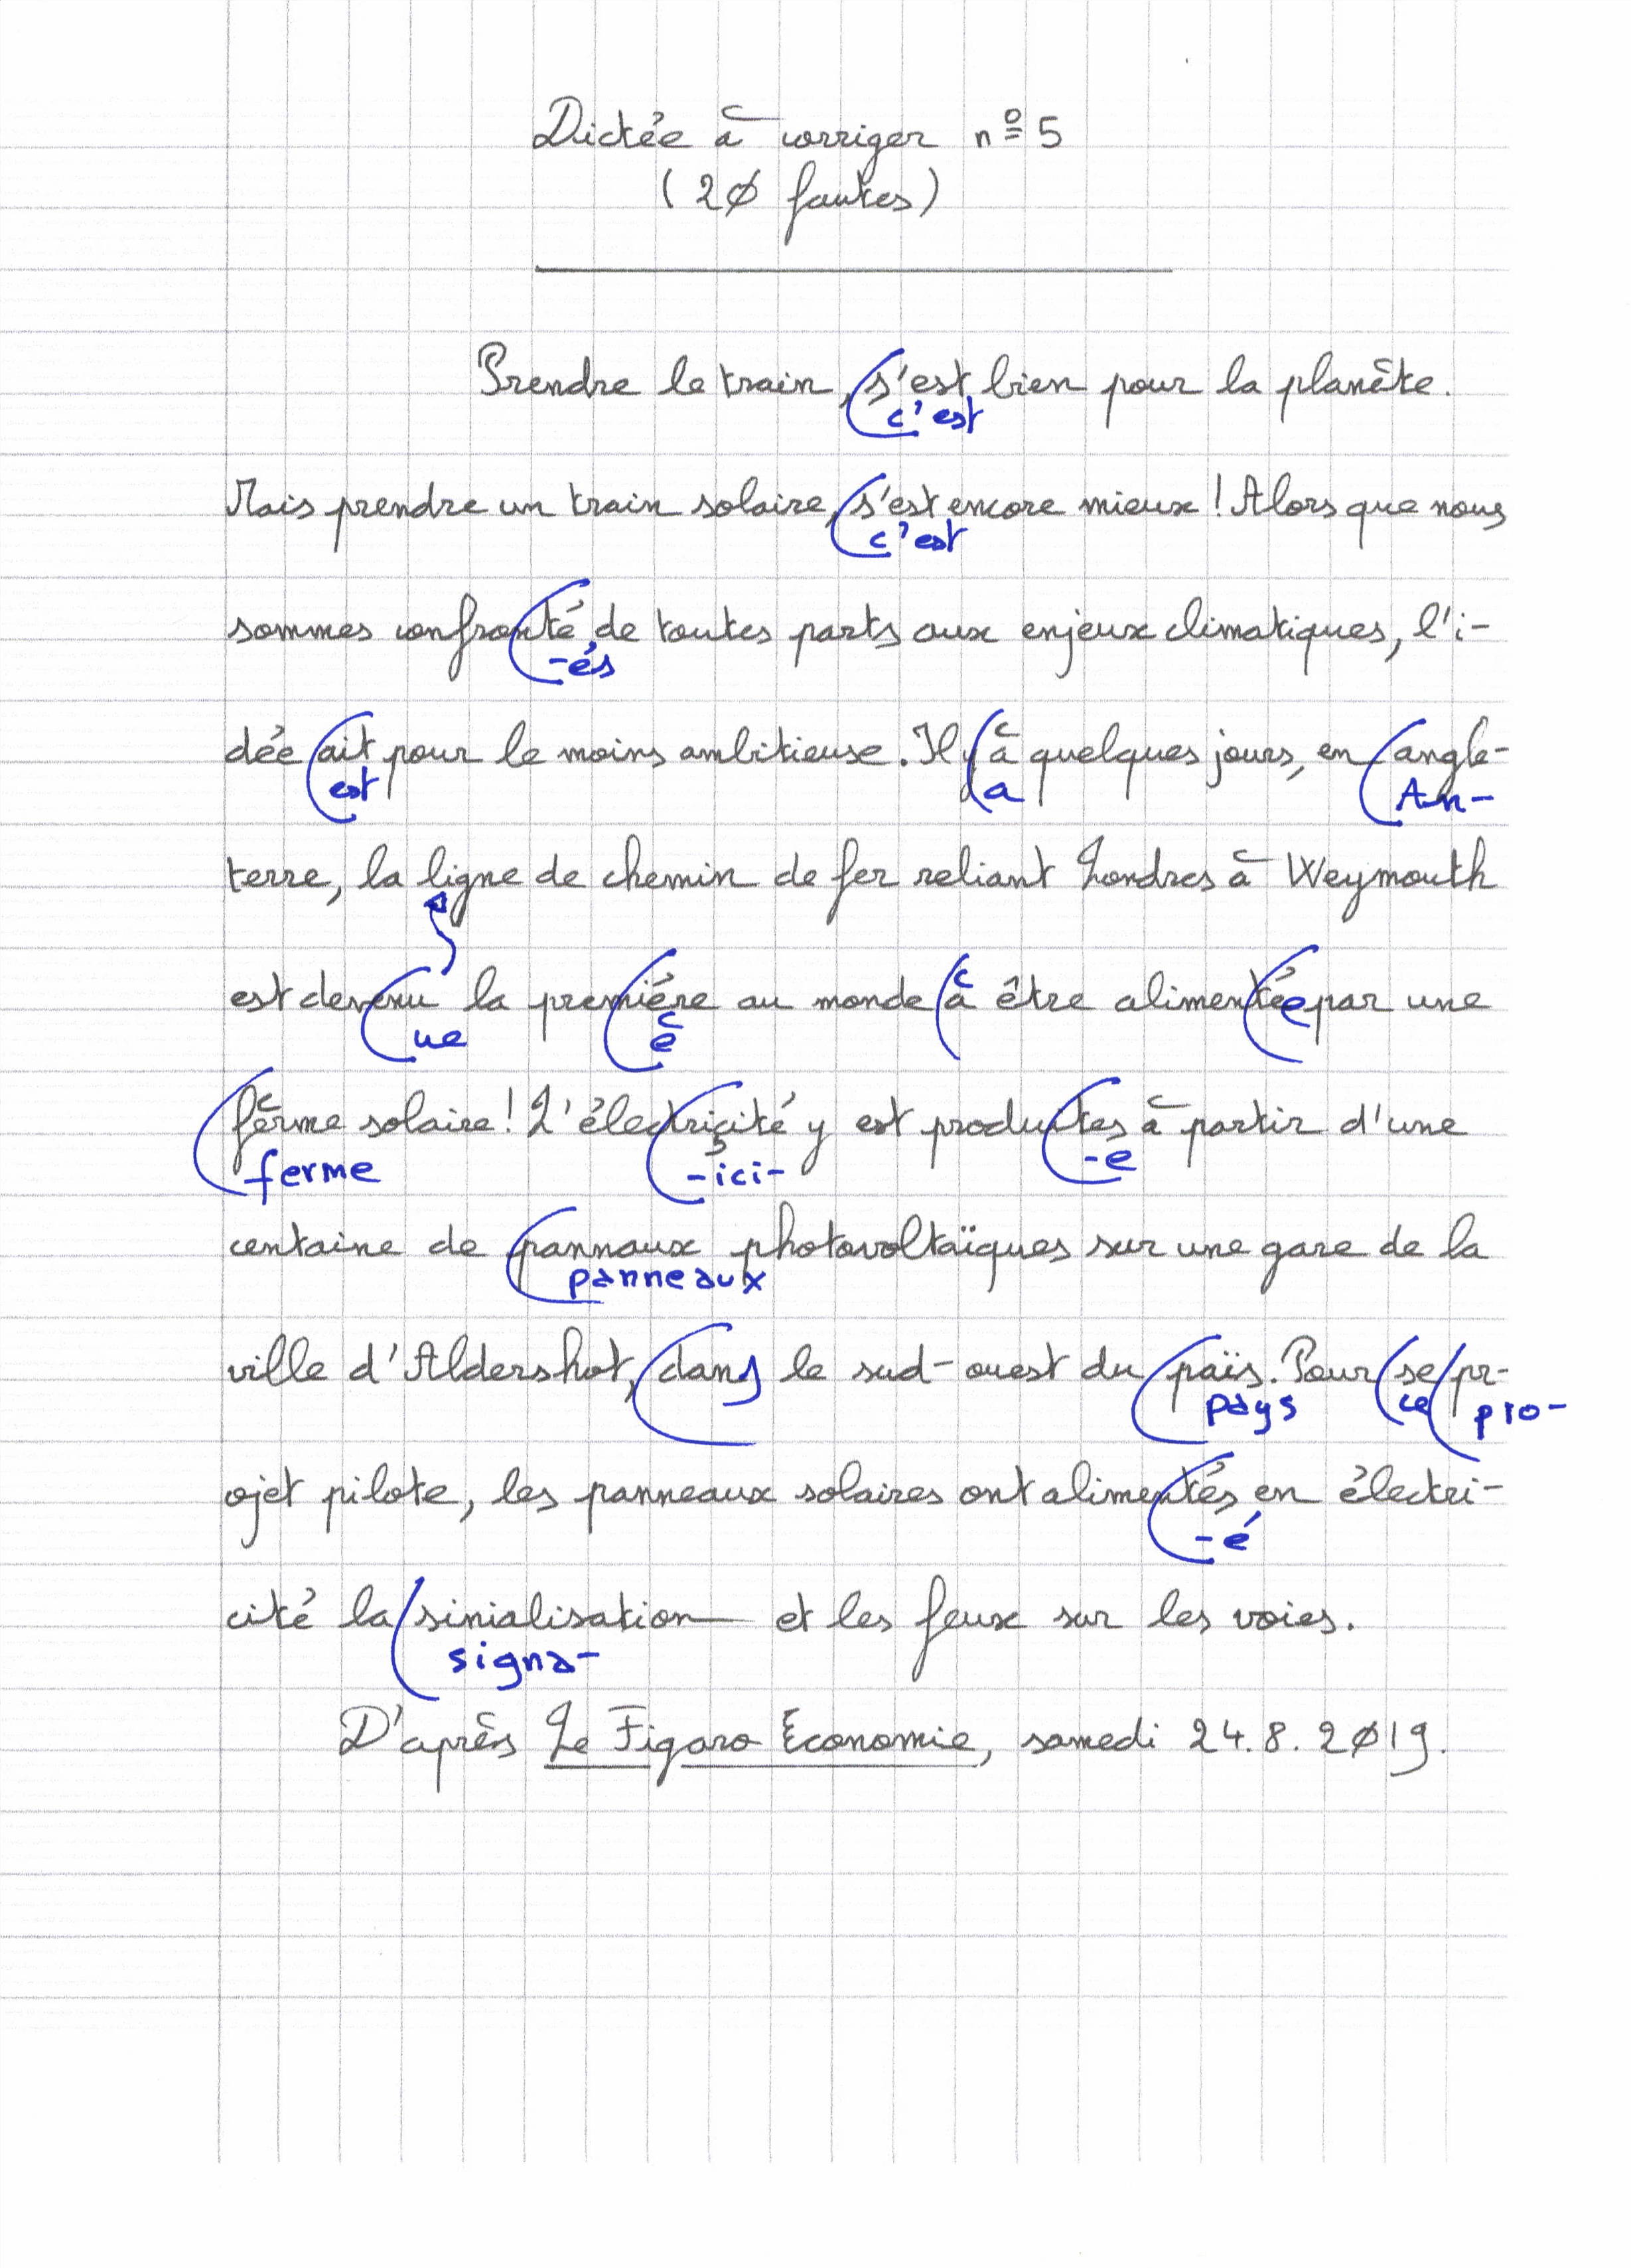 Dictée à corriger nº 5
(20 fautes)
Prendre le train, s'est bien pour la planète.
c'est
Mais prendre un train solaire, s'est encore mieux ! Alors que nous
c'est
sommes confronté de toutes parts aux enjeux climatiques, l'i-
-és
dée ait pour le moins ambitieuse. Il y à quelques jours, en angle-
est a An-
terre, la ligne de chemin de fer reliant Londres à Weymouth
est devenu la premiére au monde à être alimentée par une
ue è
fèrme solaire ! L'élèctriçité y est produites à partir d'une
ferme -ici- -e
centaine de pannaux photovoltaïques sur une gare de la
panneaux
ville d'Aldershot, dans le sud-ouest du païs. Pour se pr-
pays ce pro-
ojet pilote, les panneaux solaires ont alimentés en électri-
-é
cité la sinialisation et les feux sur les voies.
signa-
D'après Le Figaro Économie, samedi 24.8.2019.